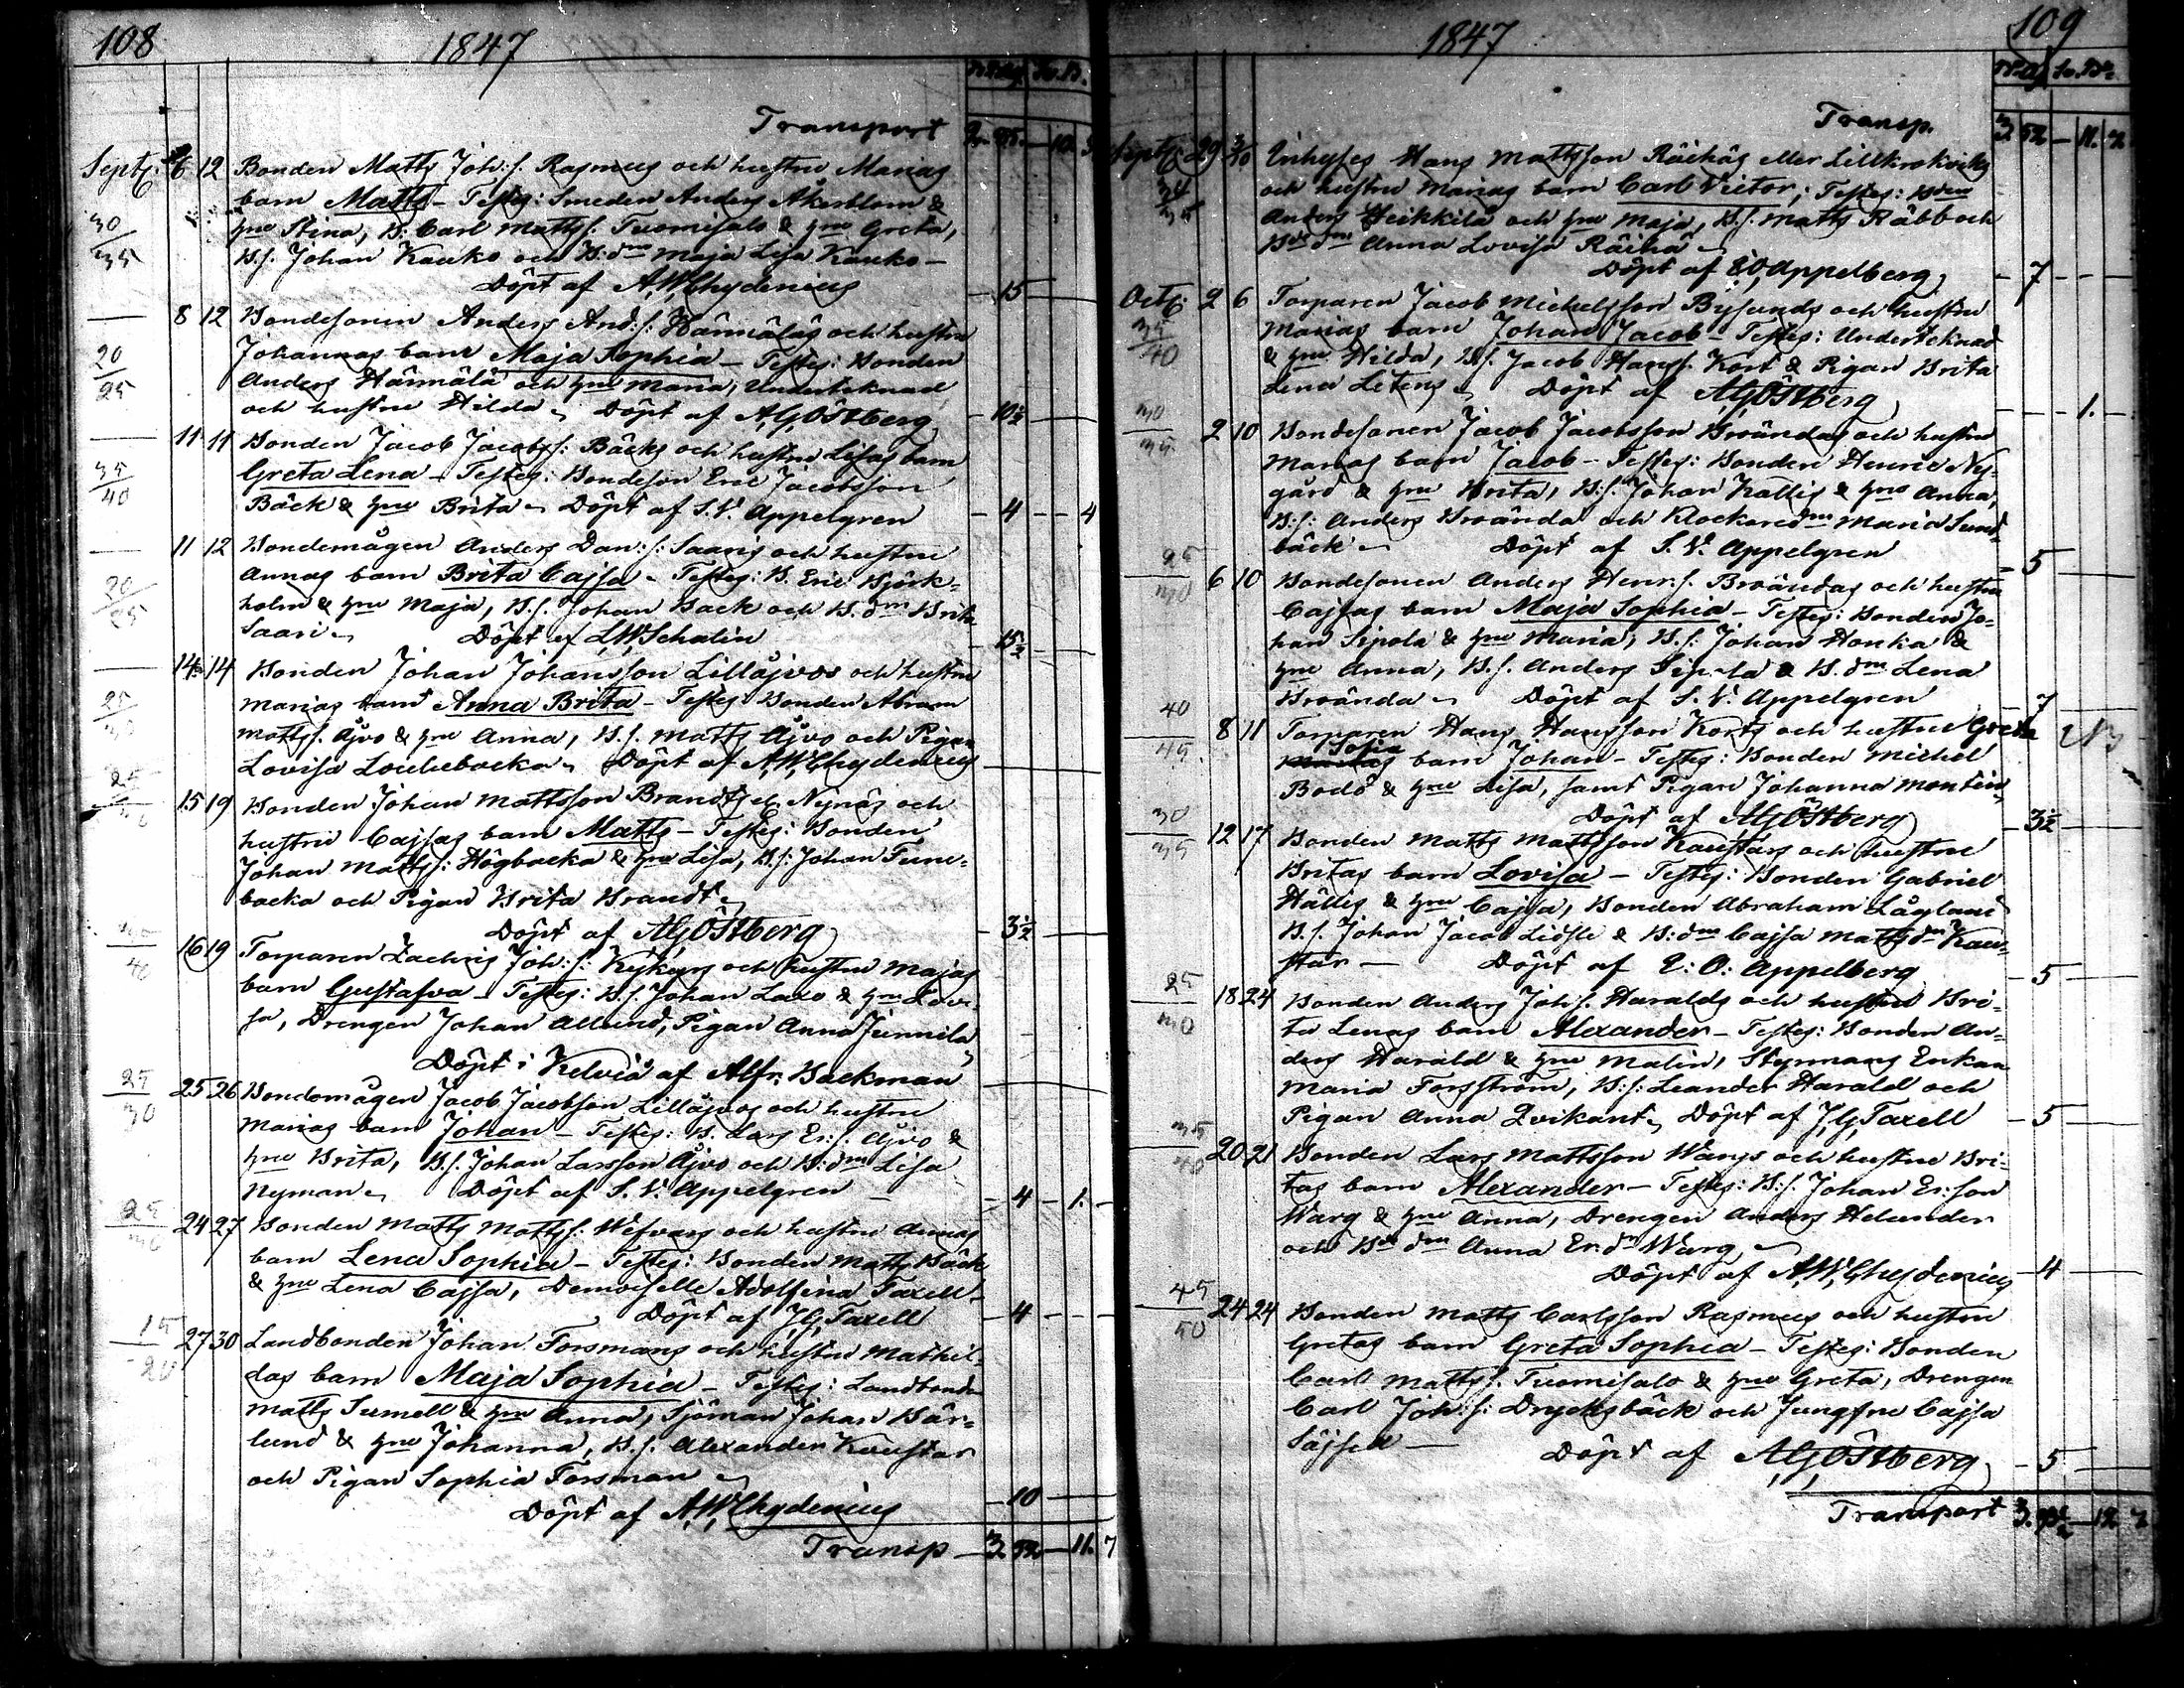 108
1847
Transport
Sept: 6 12 Bonden Matts Joh:s. Rasmus och hustru Marias
30/35 barn Matts - Testes: Smeden Anders Åkerblom &
hru Stina, B. Carl Matts. Tuomisalo & hru Greta,
B.s. Johan Kauko och B:dr Maja Lisa Kauko -
Döpt af A.W. Chydenius - 15
8 12 Bondesonen Anders And:s: Hännäläs och hustru
20/25 Johannas barn Maja Sophia - Testes: Bonden
Anders Hännälä och hru Maria, Underteknad
och hustru Hilda. Döpt af A.G. Östberg - 10½
11 11 Bonden Jacob Jacobs: Bäcks och hustru Lisas barn
35/40 Greta Lena - Testes: Bondeson Eric Jacobsson
Bäck & hru Brita - Döpt af S.V. Appelgren - 4 - 4
11 12 Bondemågen Anders Dan:s: Saaris och hustru
20/25 Annas barn Brita Cajsa - Testes: B. Eric Björk-
holm & hru Maja, B.s. Johan Back och B.dr Brita
Saari - Döpt af L.W. Schalin - 15½
14 14 Bonden Johan Johansson Lillåjvos och hustru
25/30 Marias barn Anna Brita - Testes Bonden Abram
Matts. Åjvo & hru Anna, B.s. Matts Åjvo och Pigan
Lovisa Louhebacka - Döpt af A.W. Chydenius
25/30 15 19 Bonden Johan Mattsson Brandts el. Nynäs och
hustru Cajsas barn Matts - Testes: Bonden
Johan Matts: Högbacka & hru Lisa, B.s: Johan Tune-
backa och Pigan Brita Brandt -
Döpt af A.G. Östberg - 3½
40 16 19 Torparen Zachris Joh:s: Kykyrs och hustru Majas
barn Gustafva - Testes: B.s. Johan Laxo & hru Lovi-
sa, Drengen Johan Allund, Pigan Anna Junnila
Döpt i Kelviå af Alfr. Backman
25/30 25 26 Bondemågen Jacob Jacobsson Lillåjvos och hustru
Marias barn Johan - Testes: B. Lars Er:s. Åjvo &
hru Brita, B.s. Johan Larsson Åjvo och B:dr Lisa
Nyman - Döpt af S.V. Appelgren - 4 - 1.
25/30 24 27 Bonden Matts Matts: Wefvars och hustru Annas
barn Lena Sophia - Testes: Bonden Matts Bäck
& hru Lena Cajsa, Demoiselle Adolfina Taxell -
Döpt af J.G. Taxell - 4
15/20 27 30 Landbonden Johan Forsmans och hustru Mathil-
das barn Maja Sophia - Testes: Landbonden
Matts Sumell & hru Anna, Sjöman Johan Här-
lund & hru Johanna, B.s. Alexander Kaustar
och Pigan Sophia Forsman -
Döpt af A.W. Chydenius - 10
Transp - 3. 52 - 11. 7
109
1847
Transp. 3. 52 - 11. 7
Sept: 29 3/10 Inhyses Hans Mattsson Räihäs eller Lillkrokviks
och hustru Marias barn Carl Victor; Testes: Bden
Anders Heikkilä och hru Maja, B.s. Matts Räbb och
Bde dr Anna Lovisa Räihä -
Döpt af E.O. Appelberg - 7
Oct: 2 6 Torparen Jacob Michelsson Bysunds och hustru
35/40 Marias barn Johan Jacob - Testes: Undertecknad
& hru Hilda, B.s. Jacob Hans. Kort & Pigan Brita
Lena Letens - Döpt af A.G. Östberg - 1.
30/35 2 10 Bondesonen Jacob Jacobsson Broändas och hustru
Marias barn Jacob - Testes: Bonden Henric Ny-
gård & hru Brita, B.s. Johan Kallis & hru Anna,
B.s: Anders Broända och Klockaredr Maria Sund-
bäck - Döpt af S.V. Appelgren - 5
25/30 6 10 Bondesonen Anders Henr:s. Broändas och hustru
Cajsas barn Maja Sophia - Testes: Bonden Jo-
han Sipola & hru Maria, B.s: Johan Honka &
hru Anna, B.s. Anders Sipola & B.dr Lena
Broända - Döpt af S.V. Appelgren - 7
40/45 8 11 Torparen Hans Hansson Korts och hustru Greta
Sofia
barn Johan - Testes: Bonden Michel
Bodö & hru Lisa, samt Pigan Johanna Montin
Döpt af A.G. Östberg - 3½
30/35 12 17 Bonden Matts Mattsson Kaustars och hustru
Britas barn Lovisa - Testes: Bonden Gabriel
Hällis & hru Cajsa, Bonden Abraham Lågland
B.s. Johan Jacob Lidsle & B:dr Cajsa Mattsdr Kau-
star - Döpt af E: O: Appelberg - 5
25/30 18 24 Bonden Anders Joh:s. Haralds och hustru Bri-
ta Lenas barn Alexander - Testes: Bonden An-
ders Harald & hru Malin, Styrmans Enkan
Maria Forsström, B:s: Leander Harald och
Pigan Anna Qvikant, Döpt af J.G. Taxell - 5
35/40 20 21 Bonden Lars Mattsson Wargs och hustru Bri-
tas barn Alexander - Testes: B:s. Johan Er:son
Warg & hru Anna, Drengen Anders Helander
och Bde dr Anna Er:dr Warg -
Döpt af A.W. Chydenius - 4
45/50 24 24 Bonden Matts Carlsson Rasmus och hustru
Gretas barn Greta Sophia - Testes: Bonden
Carl Matts. Tuomisalo & hru Greta, Drengen
Carl Joh:s: Drycksbäck och Jungfru Cajsa
Säjsell - Döpt af A.G. Östberg - 5
Transport